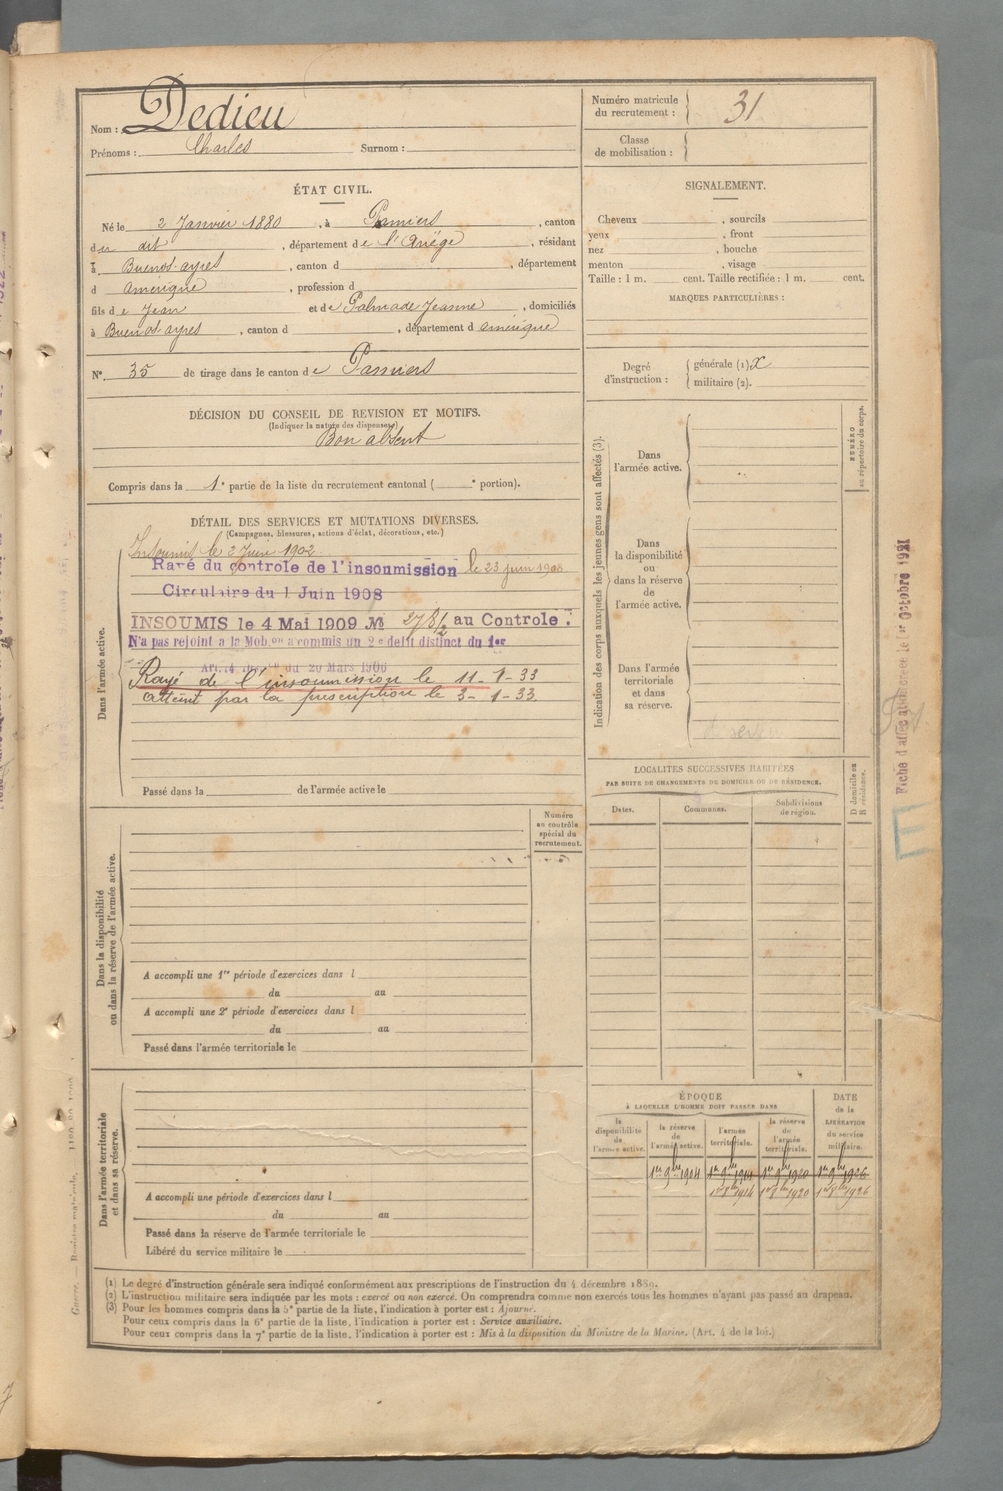 Nom : Dedieu
Prénoms : Charles Surnom :
Numéro matricule
du recrutement : 31
Classe
de mobilisation :
ÉTAT CIVIL.
Né le 2 Janvier 1880, à Pamiers, canton
du dit, département de l'Ariège, résidant
à Buenos-ayres, canton d , département
d amérique, profession d
fils de Jean et de Palmade Jeanne, domiciliés
à Buenos ayres, canton d , département d amérique
N° 35 de tirage dans le canton de Pamiers
DÉCISION DU CONSEIL DE REVISION ET MOTIFS.
(Indiquer la nature des dispenses)
Bon absent
Compris dans la 1e partie de la liste du recrutement cantonal ( e portion).
DÉTAIL DES SERVICES ET MUTATIONS DIVERSES.
(Campagnes, blessures, actions d'éclat, décorations, etc.)
Dans l'armée active.
Insoumis le 2 Juin 1902
Rayé du controle de l'insoumission le 23 juin 1908
Circulaire du 1 Juin 1908
INSOUMIS le 4 Mai 1909 No 278/2 au Controle
N'a pas rejoint a la Mob.on a commis un 2e délit distinct du 1er
du 20 Mars 1906
Rayé de l'insoumission le 11-1-33
atteint par la prescription le 3-1-33
Passé dans la de l'armée active le
Dans la disponibilité
ou dans la réserve de l'armée active.
Numéro
au contrôle
spécial du
recrutement.
A accompli une 1re période d'exercices dans l
du au
A accompli une 2e période d'exercices dans l
du au
Passé dans l'armée territoriale le
Dans l'armée territoriale
et dans sa réserve.
A accompli une période d'exercices dans l
du au
Passé dans la réserve de l'armée territoriale le
Libéré du service militaire le
SIGNALEMENT.
Cheveux , sourcils
yeux , front
nez , bouche
menton , visage
Taille : 1 m. cent. Taille rectifiée : 1 m. cent.
MARQUES PARTICULIÈRES :
Degré
d'instruction :
générale (1) X
militaire (2).
Indication des corps auxquels les jeunes gens sont affectés (3).
Dans
l'armée active.
NUMÉRO
au répertoire du corps.
Dans
la disponibilité
ou
dans la réserve
de
l'armée active.
Dans l'armée
territoriale
et dans
sa réserve.
LOCALITÉS SUCCESSIVES HABITÉES
PAR SUITE DE CHANGEMENTS DE DOMICILE OU DE RÉSIDENCE.
Dates. Communes. Subdivisions
de région.
D domicile ou
R résidence.
ÉPOQUE
À LAQUELLE L'HOMME DOIT PASSER DANS
DATE
de la
LIBÉRATION
du service
militaire.
la
disponibilité
de
l'armée active.
la réserve
de
l'armée active.
l'armée
territoriale.
la réserve
de
l'armée
territoriale.
1er 9bre 1904 1er 9bre 1914 1er 9bre 1920 1er 9bre 1926
1er 8bre 1914 1er 8bre 1920 1er 8bre 1926
Fiche d'affectation créée le 1er Octobre 1921
E
(1) Le degré d'instruction générale sera indiqué conformément aux prescriptions de l'instruction du 4 décembre 1889.
(2) L'instruction militaire sera indiquée par les mots : exercé ou non exercé. On comprendra comme non exercés tous les hommes n'ayant pas passé au drapeau.
(3) Pour les hommes compris dans la 5e partie de la liste, l'indication à porter est : Ajourné.
Pour ceux compris dans la 6e partie de la liste, l'indication à porter est : Service auxiliaire.
Pour ceux compris dans la 7e partie de la liste, l'indication à porter est : Mis à la disposition du Ministre de la Marine. (Art. 4 de la loi.)